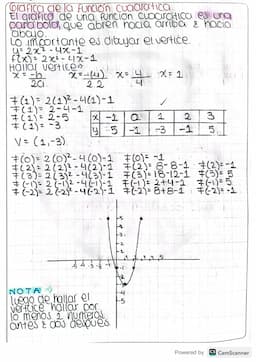 Gráfica de la función cuadrática.
El gráfico de una función cuadrática es una
parábola, que abren hacia arriba o hacia
abajo.
Lo importante es dibujar el vertice.
y = 2x² - 4x - 1
f(x) = 2x² - 4x - 1
Hallar vertice:
x = -b/2a x = -(-4)/2·2 x = 4/4 x = 1
f(1) = 2(1)² - 4(1) - 1
f(1) = 2 - 4 - 1
f(1) = 2 - 5
f(1) = -3
x -1 0 1 2 3
y 5 -1 -3 -1 5
V = (1, -3)
f(0) = 2(0)² - 4(0) - 1 f(0) = -1
f(2) = 2(2)² - 4(2) - 1 f(2) = 8 - 8 - 1 f(2) = -1
f(3) = 2(3)² - 4(3) - 1 f(3) = 18 - 12 - 1 f(3) = 5
f(-1) = 2(-1)² - 4(-1) - 1 f(-1) = 2 + 4 - 1 f(-1) = 5
NOTA:
Luego de hallar el
vertice hallar por
lo menos 2 números
antes y dos después
Powered by CamScanner